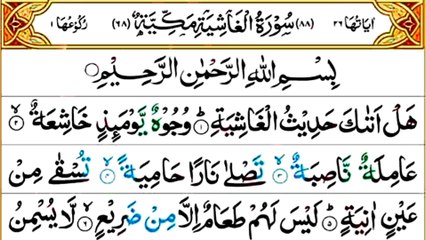 اٰیَاتُهَا ٢٦ (٨٨) سُوْرَةُ الْغَاشِيَةِ مَكِّيَّةٌ (٦٨) رُكُوْعُهَا ١
بِسْمِ اللّٰهِ الرَّحْمٰنِ الرَّحِيْمِ
هَلْ اَتٰىكَ حَدِيْثُ الْغَاشِيَةِ ؕ ١ وُجُوْهٌ يَّوْمَىِٕذٍ خَاشِعَةٌ ۙ ٢
عَامِلَةٌ نَّاصِبَةٌ ۙ ٣ تَصْلٰى نَارًا حَامِيَةً ۙ ٤ تُسْقٰى مِنْ
عَيْنٍ اٰنِيَةٍ ؕ ٥ لَيْسَ لَهُمْ طَعَامٌ اِلَّا مِنْ ضَرِيْعٍ ۙ ٦ لَّا يُسْمِنُ